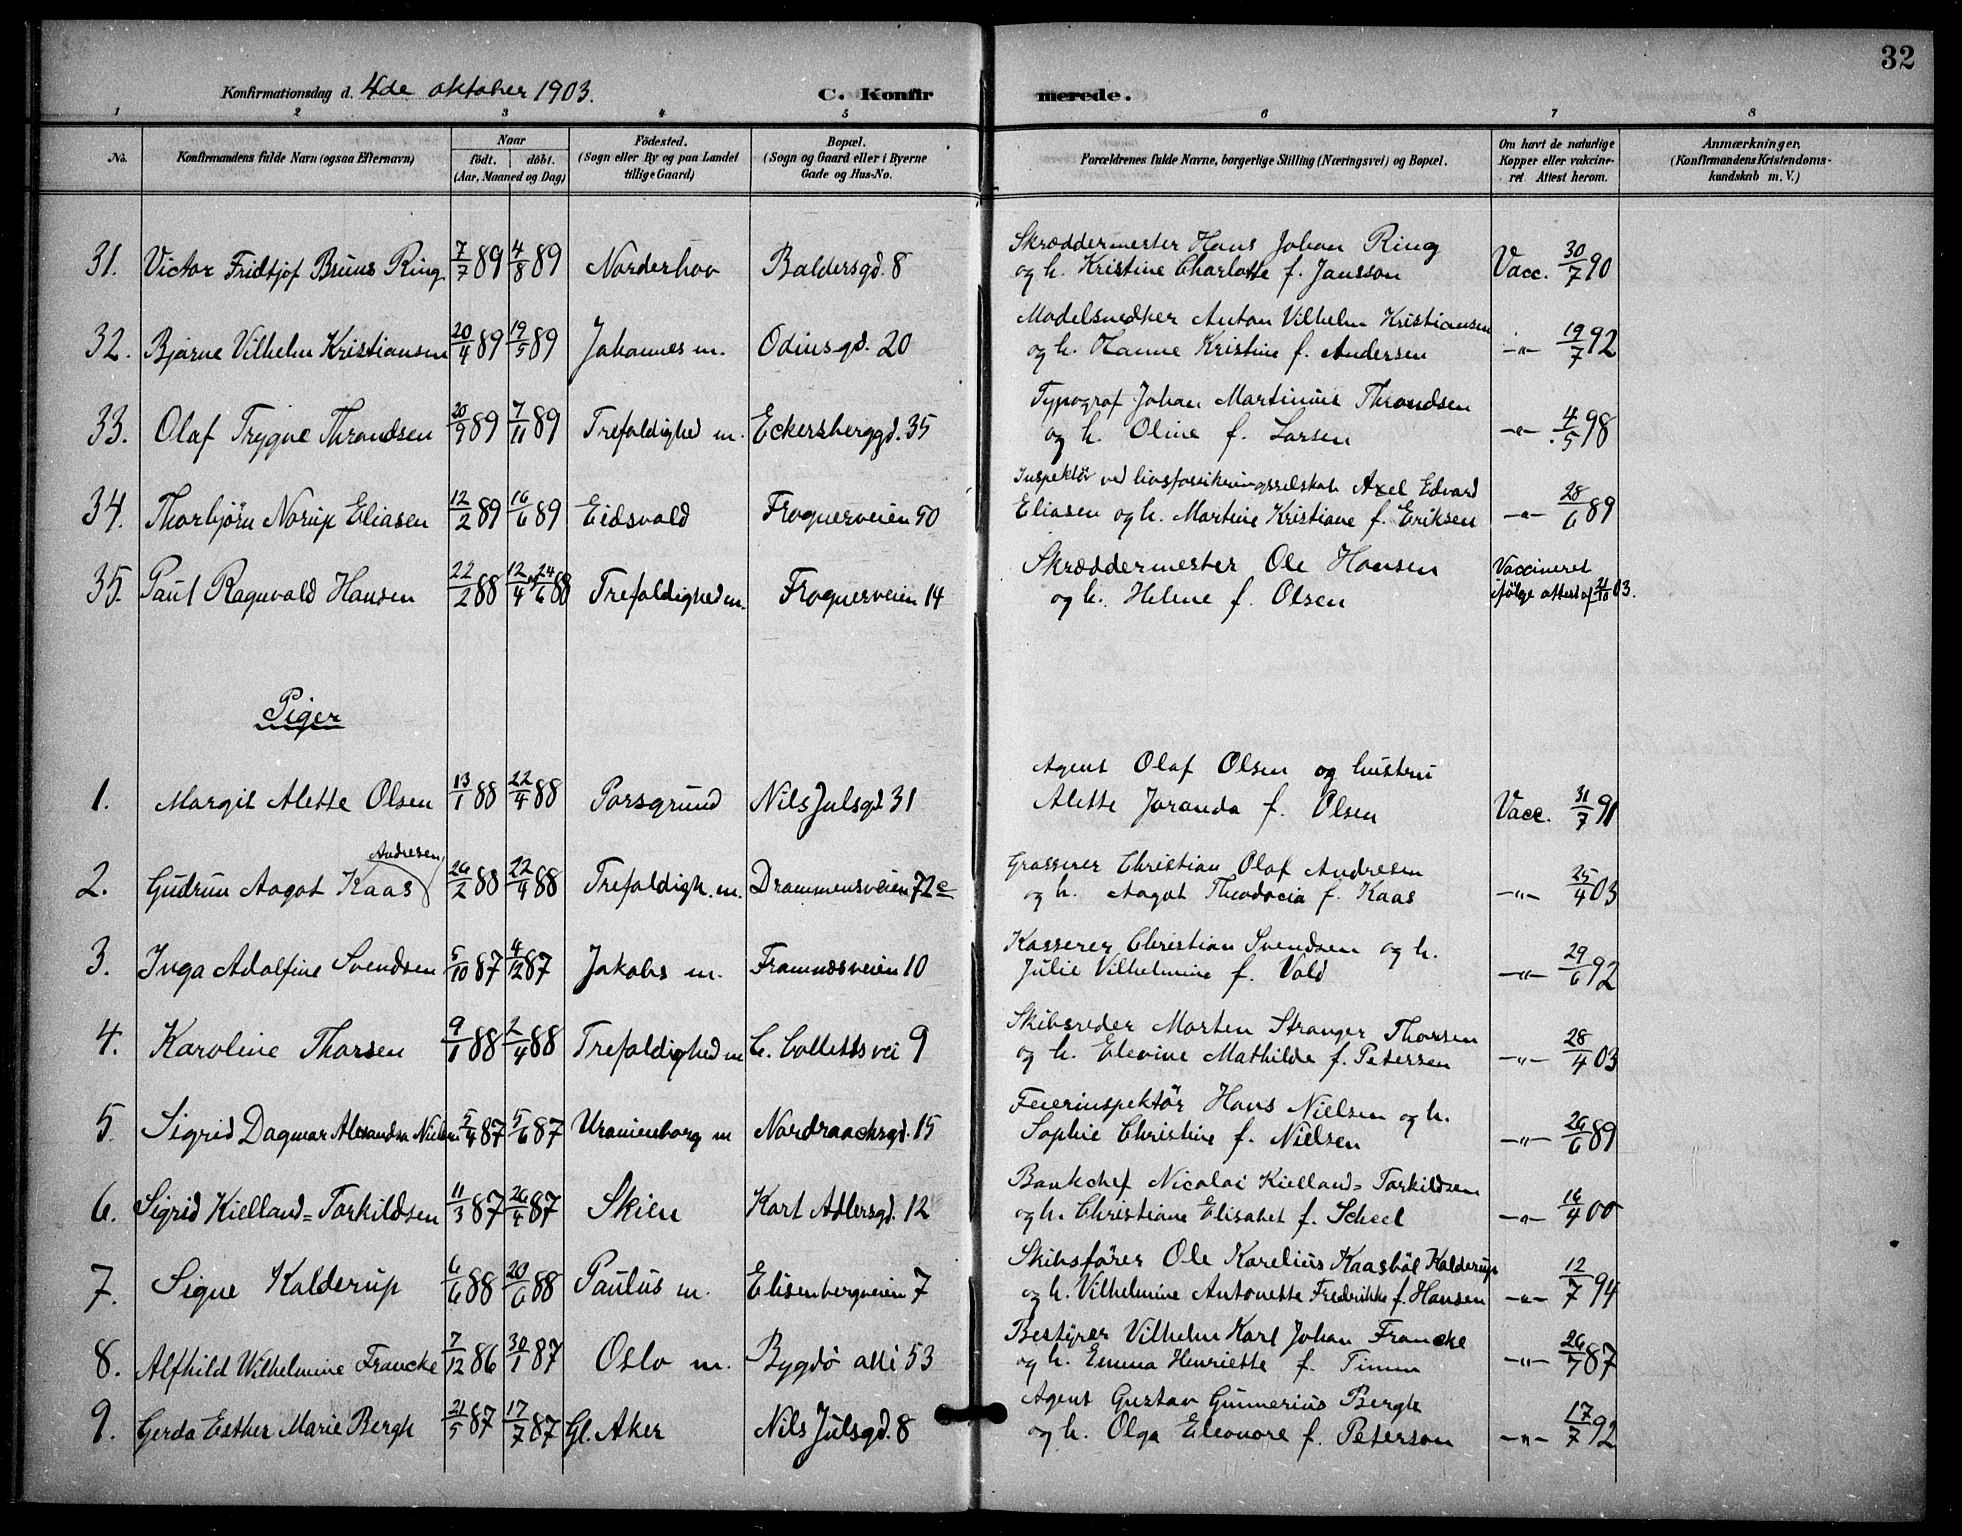 32
Konfirmationsdag d. 4de oktober 1903.
C. Konfir merede.
1 2 3 4 5 6 7 8
No.
Konfirmandens fulde Navn (ogsaa Efternavn)
Naar
födt. döbt.
(Aar, Maaned og Dag)
Födested.
(Sogn eller By og paa Landet
tillige Gaard)
Bopæl.
(Sogn og Gaard eller i Byerne
Gade og Hus-No.
Forældrenes fulde Navne, borgerlige Stilling (Næringsvei) og Bopæl.
Om havt de naturlige
Kopper eller vakcine-
ret Attest herom.
Anmærkninger.
(Konfirmandens Kristendoms-
kundskab m. V.)
31. Victor Fridtjof Bruus Ring 7/7 89 4/8 89 Norderhov Baldersgd. 8
Skræddermester Hans Johan Ring
og h. Kristine Charlotte f. Jansson Vacc. 30/7 90
32. Bjarne Vilhelm Kristiansen 20/4 89 19/5 89 Johannes m. Odinsgd. 20
Modelsnedker Anton Vilhelm Kristiansen
og h. Hanne Kristine f. Andersen -"- 19/7 92
33. Olaf Trygve Throndsen 20/9 89 7/11 89 Trefoldighed m. Eckersberggd. 35
Typograf Johan Martinius Throndsen
og h. Oline f. Larsen -"- 4/5 98
34. Thorbjörn Norup Eliasen 12/2 89 16/6 89 Eidsvold Frognerveien 50
Inspektör ved livsforsikringsselskab Axel Edvard
Eliasen og h. Martine Kristiane f. Eriksen -"- 28/6 89
35. Paul Ragnvald Hansen 22/2 88 12/4 og 24/6 88 Trefoldighed m. Frognerveien 14
Skræddermester Ole Hansen
og h. Helene f. Olsen
Vaccineret
ifølge attest af 2/10 03.
Piger
1. Margit Alette Olsen 13/1 88 22/4 88 Porsgrund Nils Julsgd 31
Agent Olaf Olsen og hustru
Alette Joranda f. Olsen Vacc. 31/7 91
Andresen
2. Gudrun Aagot Kaas 26/2 88 22/4 88 Trefoldigh. m. Drammensveien 72c
Grosserer Christian Olaf Andresen
og h. Aagot Theodocia f. Kaas -"- 25/4 03
3. Inga Adolfine Svendsen 5/10 87 4/12 87 Jakobs m. Framnæsveien 10
Kasserer Christian Svendsen og h.
Julie Vilhelmine f. Vold -"- 29/6 92
4. Karoline Thorsen 9/1 88 2/4 88 Trefoldighed m C. Colletts vei 9
Skibsreder Morten Stranger Thorsen
og h. Elevine Mathilde f. Petersen -"- 28/4 03
5. Sigrid Dagmar Alexandra Nielsen 5/4 87 5/6 87 Uranienborg m Nordraachsgd. 15
Feierinspektör Hans Nielsen og h.
Sophie Christine f. Nielsen -"- 26/6 89
6. Sigrid Kielland=Torkildsen 11/3 87 26/4 87 Skien Kort Adlersgd. 12
Bankchef Nicolai Kielland=Torkildsen
og h. Christiane Elisabet f. Scheel -"- 16/4 00
7. Signe Kolderup 6/6 88 20/6 88 Paulus m. Elisenbergveien 7
Skibsfører Ole Karelius Kaasböl Kolderup
og h. Vilhelmine Antonette Fredrikke f. Hansen -"- 12/7 94
8. Alfhild Wilhelmine Francke 7/12 86 30/1 87 Oslo m. Bygdö alle 53
Bestyrer Vilhelm Karl Johan Francke
og h. Emma Henriette f. Timm -"- 26/7 87
9. Gerda Esther Marie Bergh 21/5 87 17/7 87 Gl. Aker Nils Julsgd. 8
Agent Gustav Gunnerius Bergh
og h. Olga Eleonore f. Peterson -"- 17/7 92